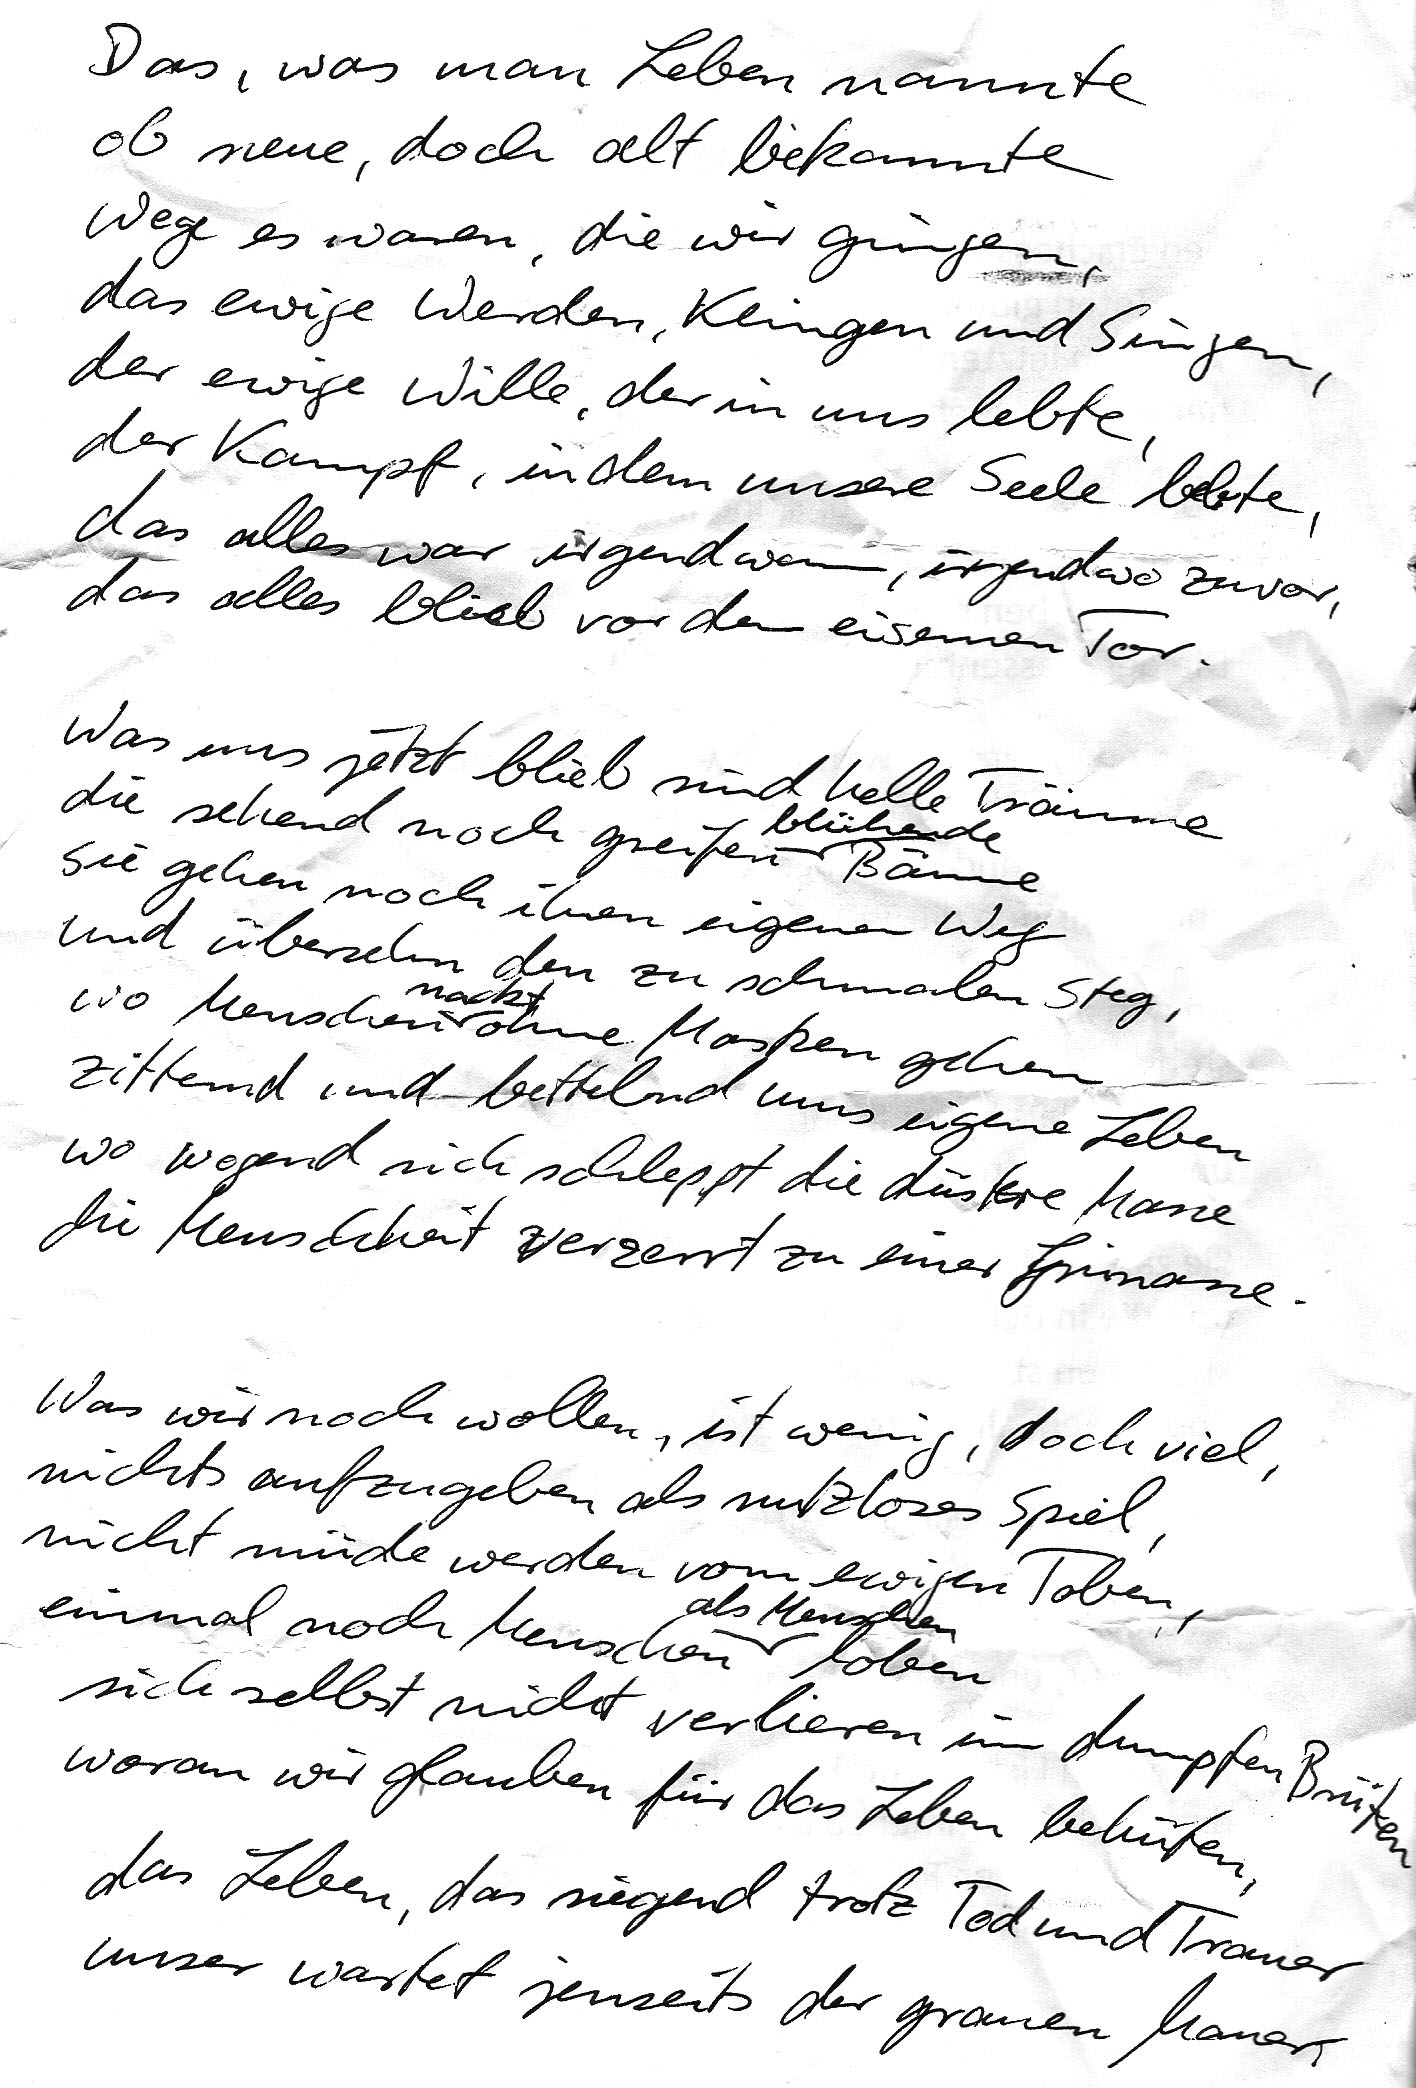 Das, was man Leben nannte
ob neue, doch alt bekannte
Wege es waren, die wir gingen,
das ewige Werden, Klingen und Singen,
der ewige Wille, der in uns lebte,
der Kampf, in dem unsere Seele bebte,
das alles war irgendwann, irgendwo zuvor,
das alles blieb vor dem eisernen Tor.
Was uns jetzt blieb sind helle Träume
die sehend noch greifen blühende Bäume
sie gehen noch ihren eigenen Weg
und übersehn den zu schmalen Steg,
wo Menschen nackt ohne Masken gehen
zitternd und bettelnd ums eigene Leben
wo wogend sich schleppt die düstere Masse
die Menschheit verzerrt zu einer Grimasse.
Was wir noch wollen, ist wenig, doch viel,
nichts aufzugeben als nutzloses Spiel,
nicht müde werden vom ewigen Toben,
einmal noch Menschen als Menschen loben
sich selbst nicht verlieren im dumpfen Brüten
woran wir glauben für das Leben behüten,
das Leben, das siegend trotz Tod und Trauer
unser wartet jenseits der grauen Mauer.